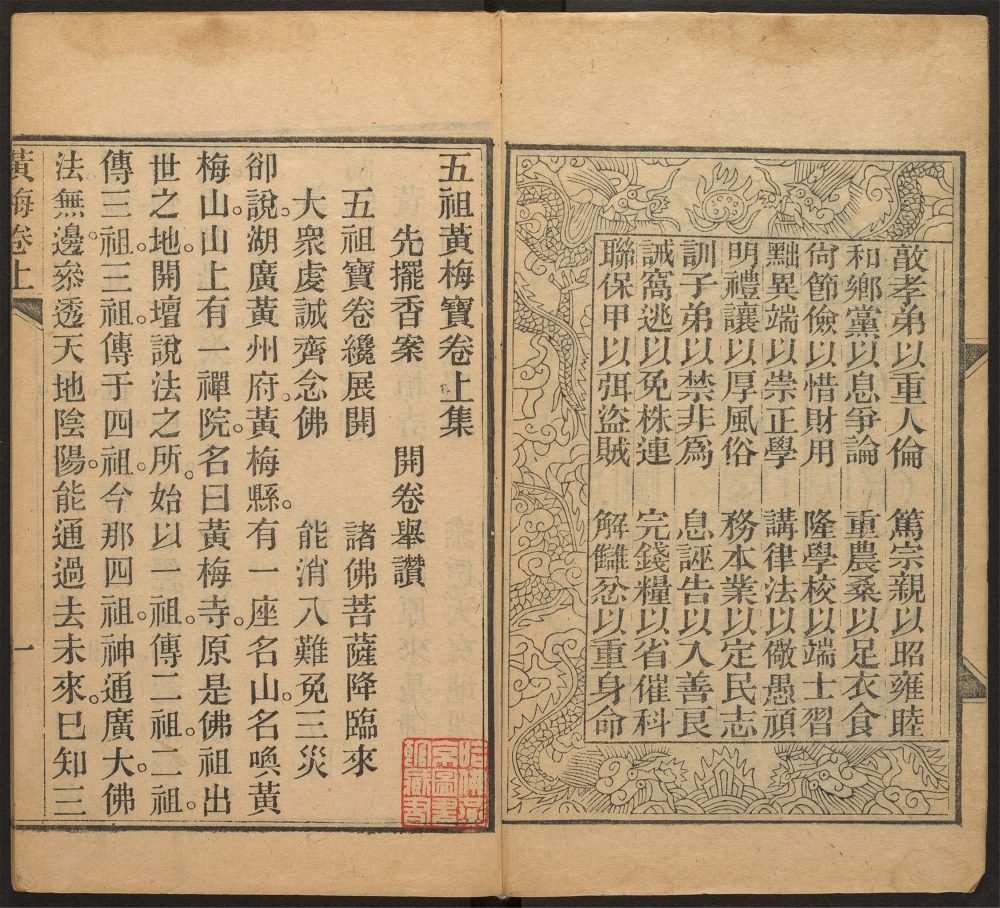 敦孝弟以重人倫 篤宗親以昭雍睦
和鄉黨以息爭論 重農桑以足衣食
尙節儉以惜財用 隆學校以端士習
黜異端以崇正學 講律法以儆愚頑
明禮讓以厚風俗 務本業以定民志
訓子弟以禁非爲 息誣告以全善良
誡窩逃以免株連 完錢糧以省催科
聯保甲以弭盜賊 解讎忿以重身命
五祖黃梅寶卷上集
先擺香案 開卷舉讚
五祖寶卷纔展開 諸佛菩薩降臨來
大衆虔誠齊念佛 能消八難免三災
卻說湖廣黃州府。黃梅縣。有一座名山。名喚黃
梅山。山上有一禪院。名曰黃梅寺。原是佛祖出
世之地。開壇說法之所。始以一祖。傳二祖。二祖
傳三祖。三祖傳于四祖。今那四祖。神通廣大。佛
法無邊。叅透天地陰陽。能通過去未來。已知三
黃梅卷上 一